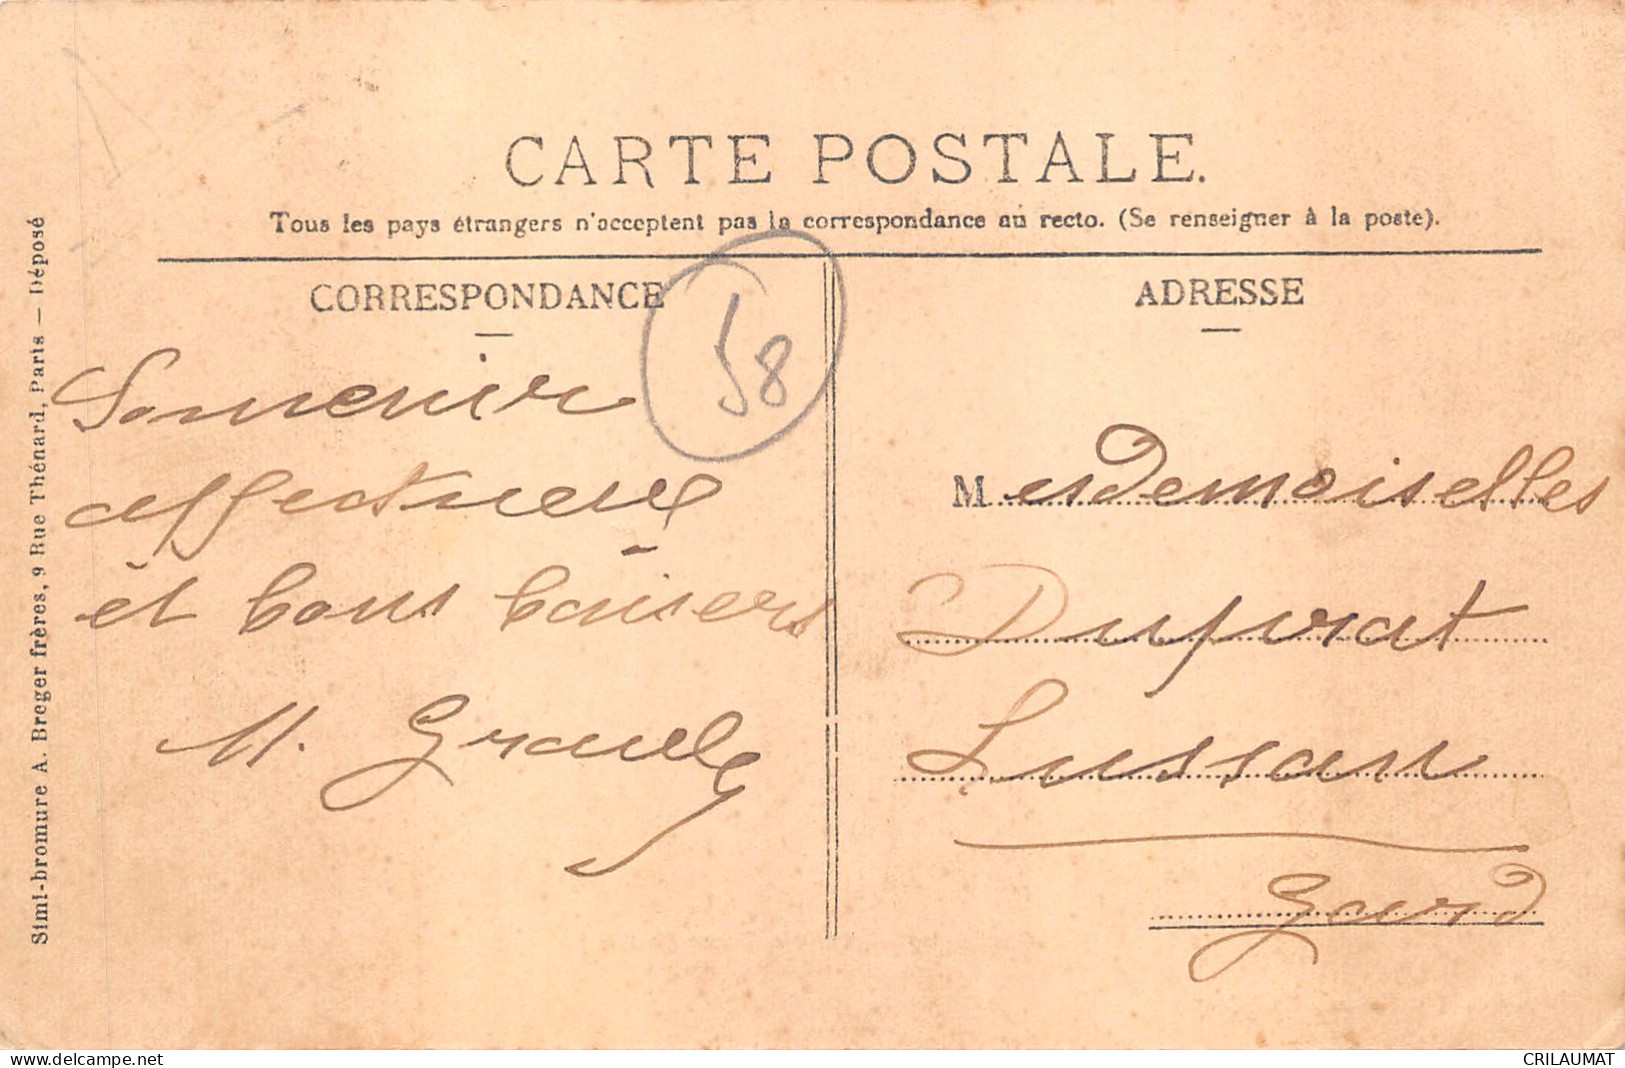 CARTE POSTALE.
Tous les pays étrangers n'acceptent pas la correspondance au recto. (Se renseigner à la poste).
CORRESPONDANCE
58
Souvenir
affectueux
et bons baisers
M. Graul
ADRESSE
Mesdemoiselles
Duprat
Lussan
Gard
Simi-bromure A. Breger frères, 9 Rue Thénard, Paris — Déposé
www.delcampe.net
CRILAUMAT